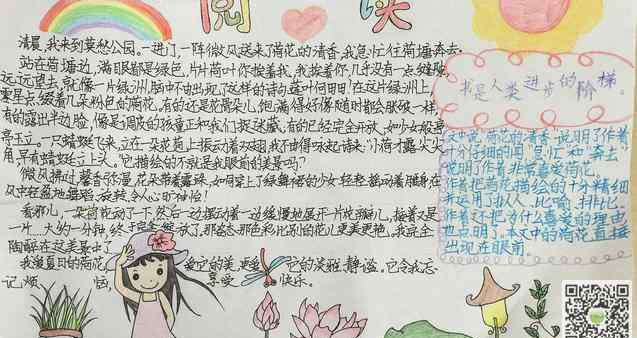 阅读
清晨,我来到莫愁公园,一进门,一阵微风送来了荷花的清香,我急忙往荷塘奔去。
站在荷塘边,满眼都是绿色,片片荷叶你挨着我,我挨着你,几乎没有一点缝隙,
远远望去,就像一片绿洲,脑中不由出现了这样的诗句莲叶何田田!在这片绿洲上,
零星点缀着几朵粉色的荷花,有的还是花骨朵儿,饱满得好像随时都会破裂一样,
有的露出半边脸,像是调皮的孩童正和我们捉迷藏,有的已经完全开放,如少女般亭
亭玉立。一只蜻蜓飞来,立在一朵花苞上振动着双翅,我不由得咏起诗来:小荷才露尖尖
角,早有蜻蜓立上头。它描绘的不就是我眼前的美景吗?
微风拂过,馨香弥漫,花朵带着露珠,如同穿上了绿舞裙的少女轻轻摇动着身体在
风中轻盈地舞蹈,令人心旷神怡!
看那儿,一朵荷花动了一下,然后一边摆动着一边缓慢地展开一片花瓣儿,接着又是
一片……大约一分钟,终于完全绽放了,那姿态那色彩比别的花儿更美更艳。我完全
陶醉在这美景中了
我爱夏日的荷花,爱它的美,更爱它的淡雅、静谧。它令我忘
记烦恼,享受快乐。
书是人类进步的阶梯。
文中说"荷花的清香"说明了作者
十分仔细的闻,"急忙"和"奔去"
说明了作者非常喜爱荷花。
作者把荷花描绘的十分精细
并运用了拟人、比喻、排比,
作者还把为什么喜爱的理由
也点明了。本文中的荷花直接
出现在眼前。